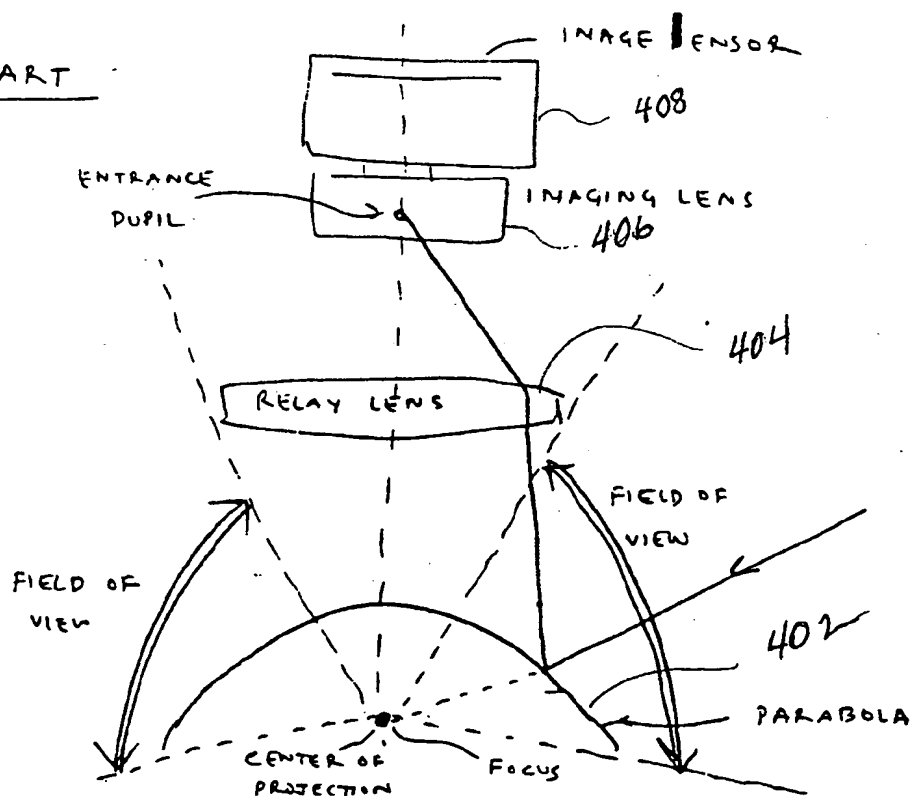 ART
IMAGE ENSOR
408
ENTRANCE
PUPIL
IMAGING LENS
406
404
RELAY LENS
FIELD OF
VIEW
FIELD OF
VIEW
402
PARABOLA
CENTER OF
PROJECTION
FOCUS